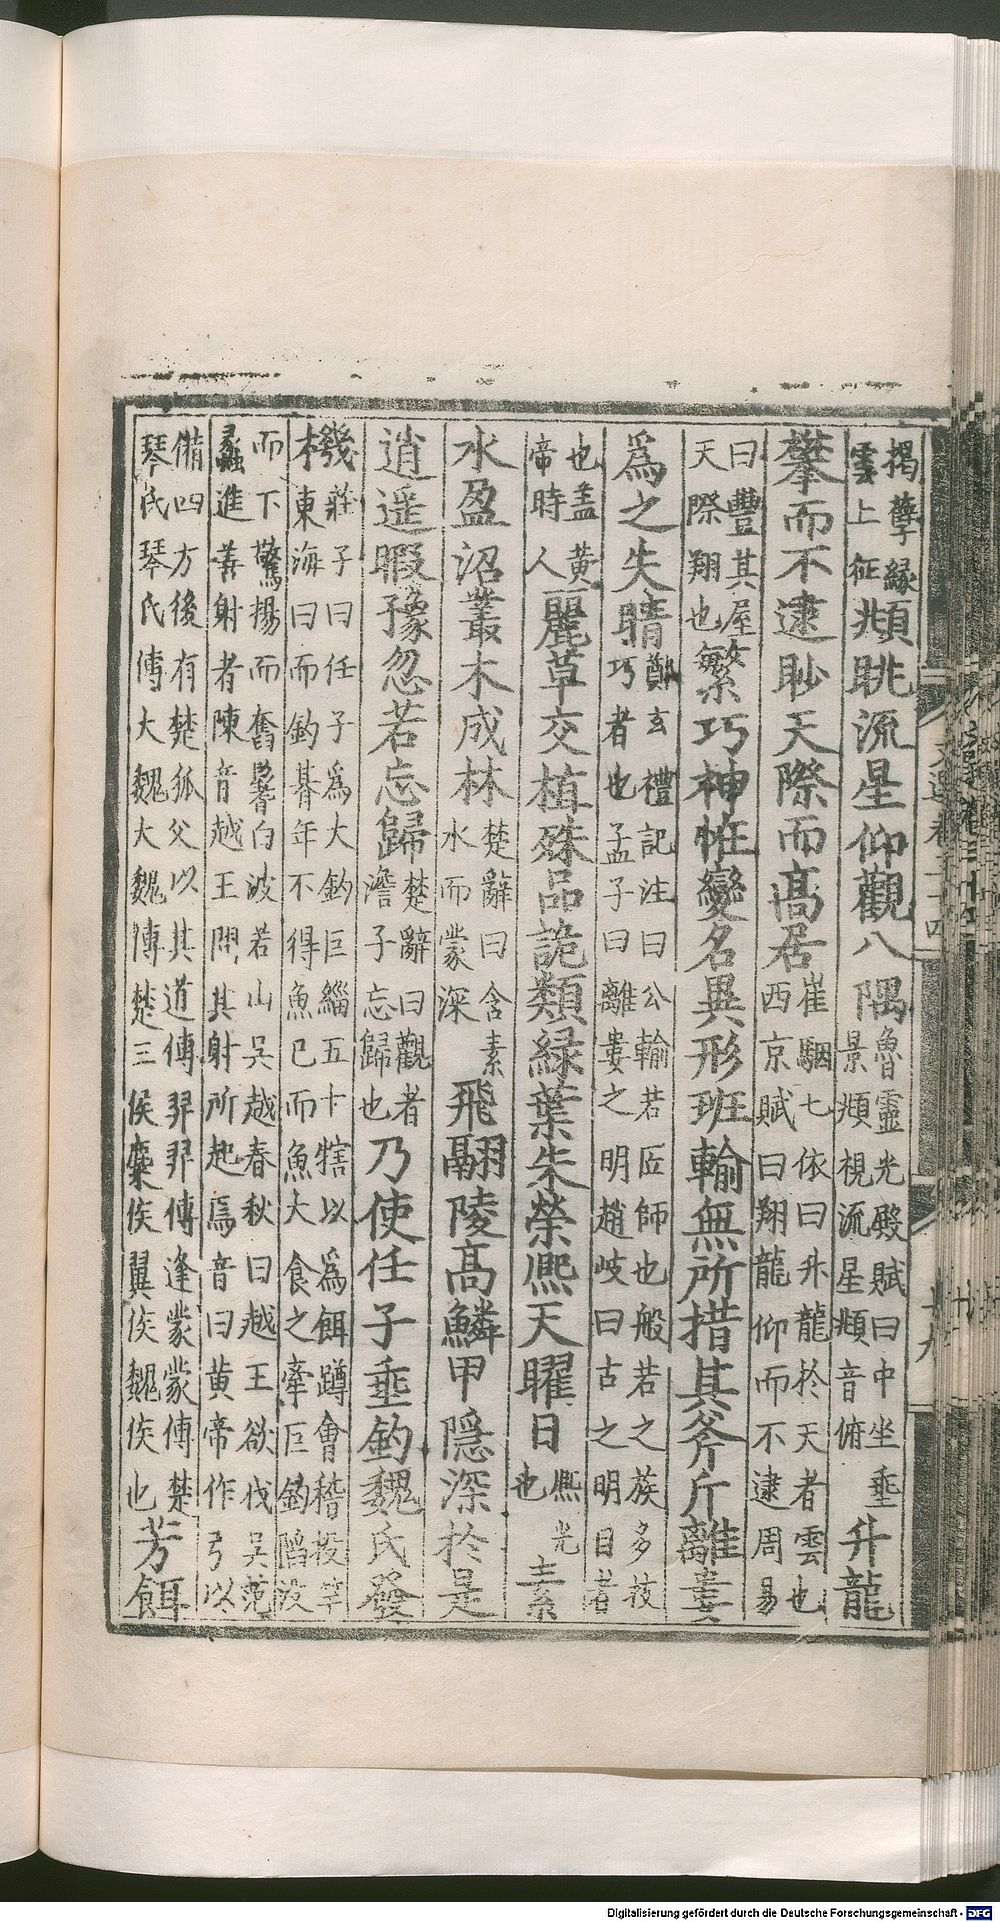 揭孽緣
雲上征
頫眺流星仰觀八隅
魯靈光殿賦曰中坐垂
景頫視流星頫音俯
升龍
攀而不逮眇天際而高居
崔駰七依曰升龍於天者雲也
西京賦曰翔龍仰而不逮周易
曰豐其屋
天際翔也
繁巧神恠變名異形班輸無所措其斧斤離婁
爲之失睛
鄭玄禮記注曰公輸若匠師也般若之族多技
巧者也孟子曰離婁之明趙岐曰古之明目者
也盖黃
帝時人
麗草交植殊品詭類緑葉朱榮熈天曜日
熈光
也
素
水盈沼叢木成林
楚辭曰含素
水而蒙深
飛翮陵高鱗甲隱深於是
逍遥暇豫忽若忘歸
楚辭曰觀者
澹子忘歸也
乃使任子垂釣魏氏發
機
莊子曰任子爲大釣巨緇五十犗以爲餌蹲會稽投竿
東海曰而釣朞年不得魚已而魚大食之牽巨釣陷没
而下驚揚而奮鬐白波若山吳越春秋曰越王欲伐吳范
蠡進善射者陳音越王問其射所起焉音曰黃帝作弓以
備四方後有楚狐父以其道傳羿羿傳逢蒙蒙傳楚
琴氏琴氏傳大魏大魏傳楚三侯麋侯翼侯魏侯也
芳餌
Digitalisierung gefördert durch die Deutsche Forschungsgemeinschaft - DFG